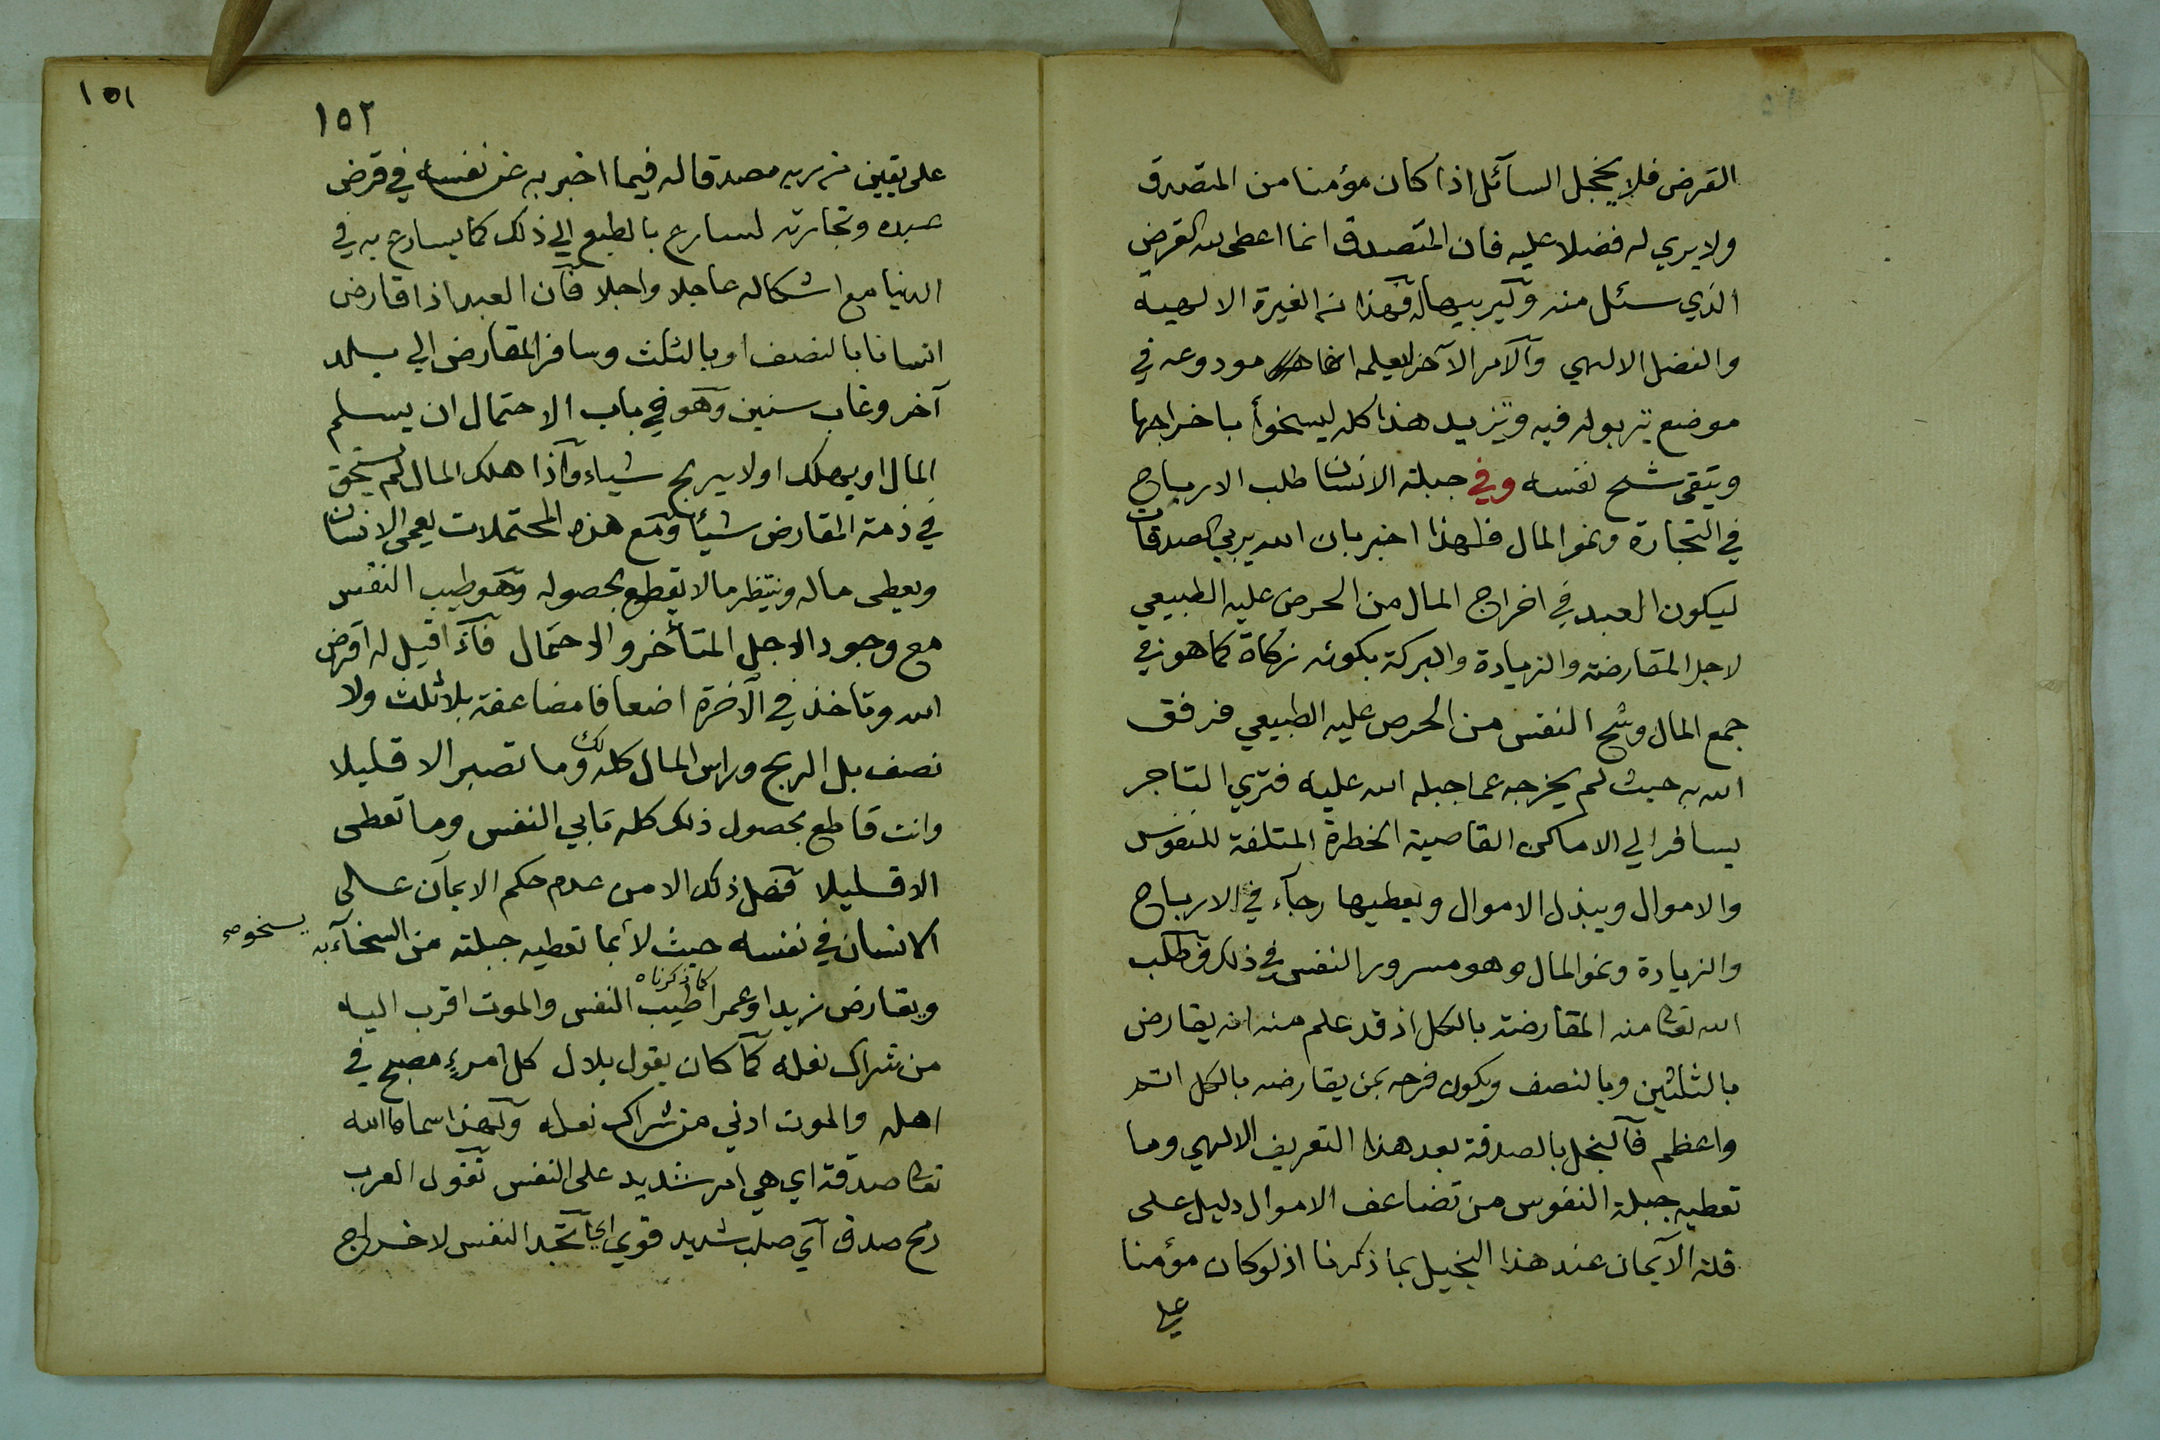 القرض فلا يخجل السآئل اذا كان مؤمنا من المتصدق
ولا يري له فضلا عليه فان المتصدق انما اعطى لله القرض
الذي سئل منه وليربيها له فهذا من الغيرة الالهيه
والفضل الالهي والامر الآخر ليعلمه انها مودوعه في
موضع تربو له فيه وتزيد هذا كله ليسخوأ باخراجها
ويتقى شح نفسه وفي جبلة الانسان طلب الارباح
في التجارة ونمو المال فلهذا اخبر بان الله يربي الصدقات
ليكون العبد في اخراج المال من الحرص عليه الطبيعي
لاجل المقارضة والزيادة والبركة بكونه زكاة كما هو في
جمع المال وشح النفس من الحرص عليه الطبيعي فرفق
الله به حيث لم يخرجه عما جبله الله عليه فتري التاجر
يسافر الي الاماكن القاصية الخطرة المتلفة للنفوس
والاموال ويبذل الاموال ويعطيها رجآء في الارباح
والزيادة ونمو المال وهو مسرور النفس في ذلك فطلب
الله تعالى منه المقارضة بالكل اذ قد علم منه انه يقارض
بالثلثين وبالنصف ويكون فرحه بمن يقارضه بالكل اتم
واعظم فالبخل بالصدقة بعد هذا التعريف الالهي وما
تعطيه جبلة النفوس من تضاعف الاموال دليل على
قلة الايمان عند هذا البخيل بما ذكرنا اذ لو كان مؤمنا
علي
١٥١
١٥٢
على يقين من ربه مصدقا له فيما اخبر به عن نفسه في قرض
عبده وتجارته لسارع بالطبع الي ذلك كما يسارع به في
الدنيا مع اشكاله عاجلا واجلا فان العبد اذا قارض
انسانا بالنصف او بالثلث وسافر المقارض الي بلد
آخر وغاب سنين وهو في باب الاحتمال ان يسلم
المال او يهلك اولا يربح شياء واذا هلك المال لم يستحق
في ذمة المقارض شيئا ومع هذه المحتملات يعمى الانسان
ويعطى ماله وينتظر مالا يقطع بحصوله وهو طيب النفس
مع وجود الاجل المتأخر والاحتمال فاذا قيل له اقرض
الله وتاخذ في الآخرة اضعافا مضاعفة بلا ثلث ولا
نصف بل الربح وراس المال كله لك وما تصبر الا قليلا
وانت قاطع بحصول ذلك كله تابي النفس وما تعطى
الا قليلا فهل ذلك الا من عدم حكم الايمان على
الانسان في نفسه حيث لا يسخو بما تعطيه جبلته من السخآء به
ويقارض زيدا وعمرا كما ذكرناه طيب النفس والموت اقرب اليه
من شراك نعله كما كان يقول بلال كل امرءٍ مصبح في
اهله والموت ادني من شراك نعله ولهذا سماها الله
تعالى صدقة اي هي امر شديد على النفس تقول العرب
رمح صدق اي صلب شديد قوي اي تجد النفس لاخراج